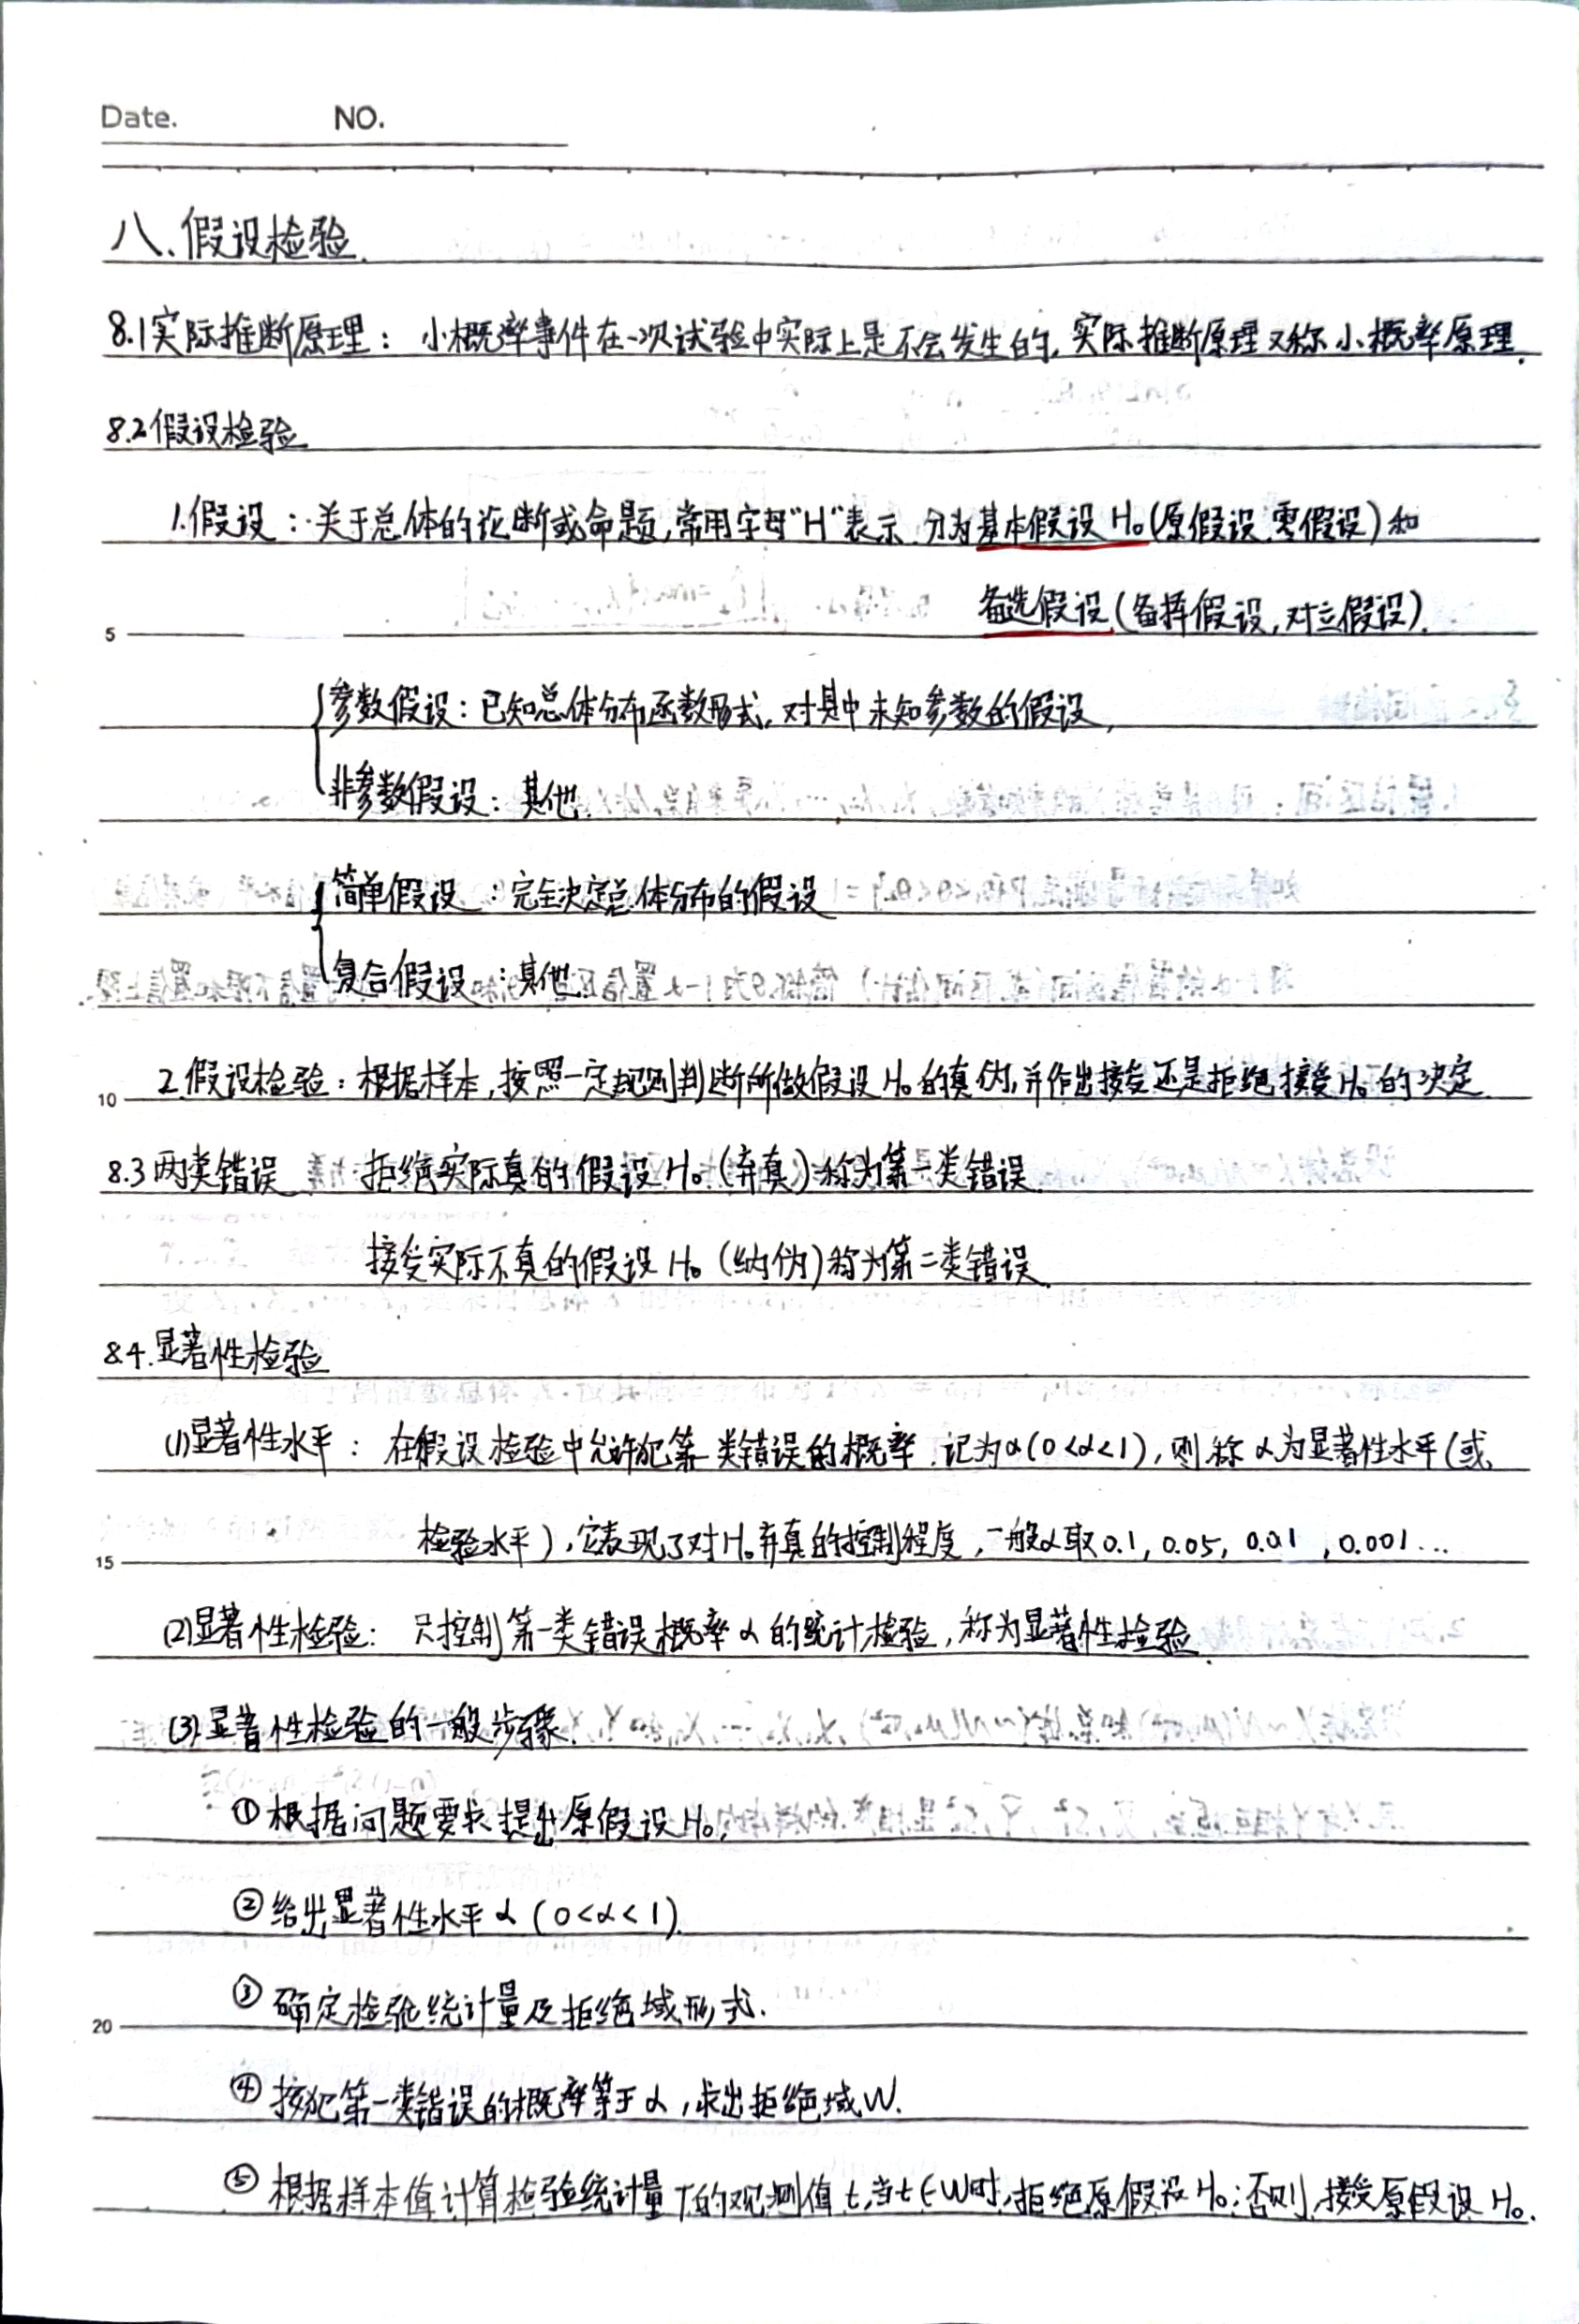 Date. NO.
八、假设检验.
8.1实际推断原理：小概率事件在一次试验中实际上是不会发生的,实际推断原理又称小概率原理.
8.2假设检验
1.假设：关于总体的论断或命题,常用字母"H"表示.分为基本假设H₀(原假设,零假设)和
备选假设(备择假设,对立假设).
5
参数假设：已知总体分布函数形式,对其中未知参数的假设,
非参数假设：其他.
简单假设：完全决定总体分布的假设
复合假设：其他.
10
2.假设检验：根据样本,按照一定规则判断所做假设H₀的真伪,并作出接受还是拒绝接受H₀的决定.
8.3两类错误 拒绝实际真的假设H₀(弃真)称为第一类错误.
接受实际不真的假设H₀(纳伪)称为第二类错误.
8.4.显著性检验
(1)显著性水平：在假设检验中允许犯第一类错误的概率,记为α(0<α<1),则称α为显著性水平(或
检验水平),它表现了对H₀弃真的控制程度,一般α取0.1,0.05,0.01,0.001...
15
(2)显著性检验：只控制第一类错误概率α的统计检验,称为显著性检验.
(3)显著性检验的一般步骤.
①根据问题要求提出原假设H₀,
②给出显著性水平α(0<α<1).
③确定检验统计量及拒绝域形式.
20
④按犯第一类错误的概率等于α,求出拒绝域W.
⑤根据样本值计算检验统计量T的观测值t,当t∈W时,拒绝原假设H₀;否则,接受原假设H₀.